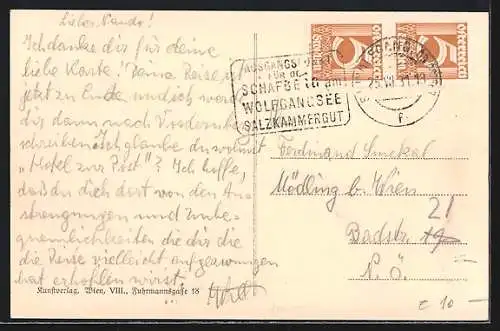 Liebes Nando!
Ich danke dir für deine
liebe Karte! Deine Reise ist
jetzt zu Ende und ich werde
dir dann nach
schreiben. Ich glaube du wohnst
"Hotel zur Post"? Ich hoffe,
daß du dich dort von den An-
strengungen und Unbe-
quemlichkeiten die dir die
die Reise vielleicht aufgezwungen
hat erholen wirst.
Kunstverlag, Wien, VIII., Fuhrmannsgasse 18
AUSGANGSPUNKT
FÜR DIE
SCHAFBERGBAHN
WOLFGANGSEE
SALZKAMMERGUT
5 ÖSTERREICH
5 ÖSTERREICH
Ferdinand Smekal
Mödling bei Wien
21
Badstr. 19
N. Ö.
€ 10-